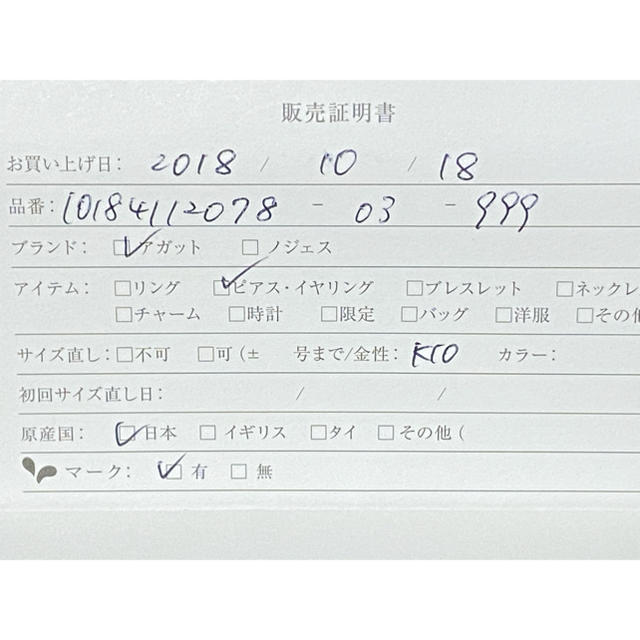 販売証明書
お買い上げ日： 2018 / 10 / 18
品番： 10184112078 - 03 - 999
ブランド： ☑アガット □ ノジェス
アイテム： □リング ☑ピアス・イヤリング □ブレスレット □ネックレ
□チャーム □時計 □限定 □バッグ □洋服 □その他
サイズ直し： □不可 □可 (± 号まで/金性： K10 カラー：
初回サイズ直し日： / /
原産国： ☑日本 □ イギリス □タイ □その他 (
マーク： ☑有 □ 無